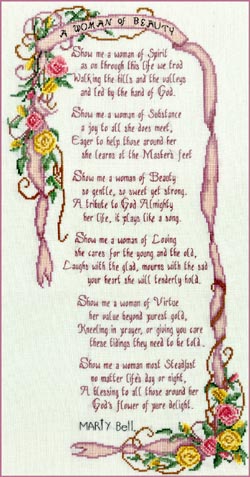 A WOMAN OF BEAUTY
Show me a woman of Spirit
as on through this life we trod
Walking the hills and the valleys
and led by the hand of God.
Show me a woman of Substance
a joy to all she does meet,
Eager to help those around her
she learns at the Master's feet
Show me a woman of Beauty
so gentle, so sweet yet strong,
A tribute to God Almighty
her life, it plays like a song.
Show me a woman of Loving
she cares for the young and the old,
Laughs with the glad, mourns with the sad
your heart she will tenderly hold.
Show me a woman of Virtue
her value beyond purest gold,
Kneeling in prayer, or giving you care
these tidings they need to be told.
Show me a woman most Steadfast
no matter life's day or night,
A blessing to all those around her
God's flower of pure delight.
MARTY Bell